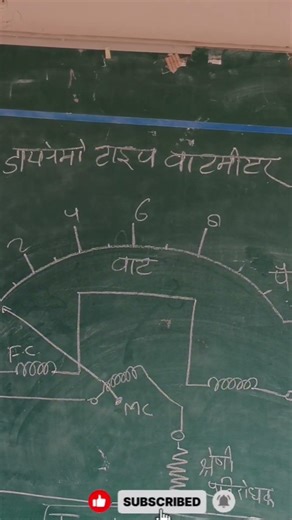 डायनेमो टाइप वाटमीटर
2 4 6 8
वाट
F.C.
MC
श्रेणी
प्रतिरोधक
SUBSCRIBED